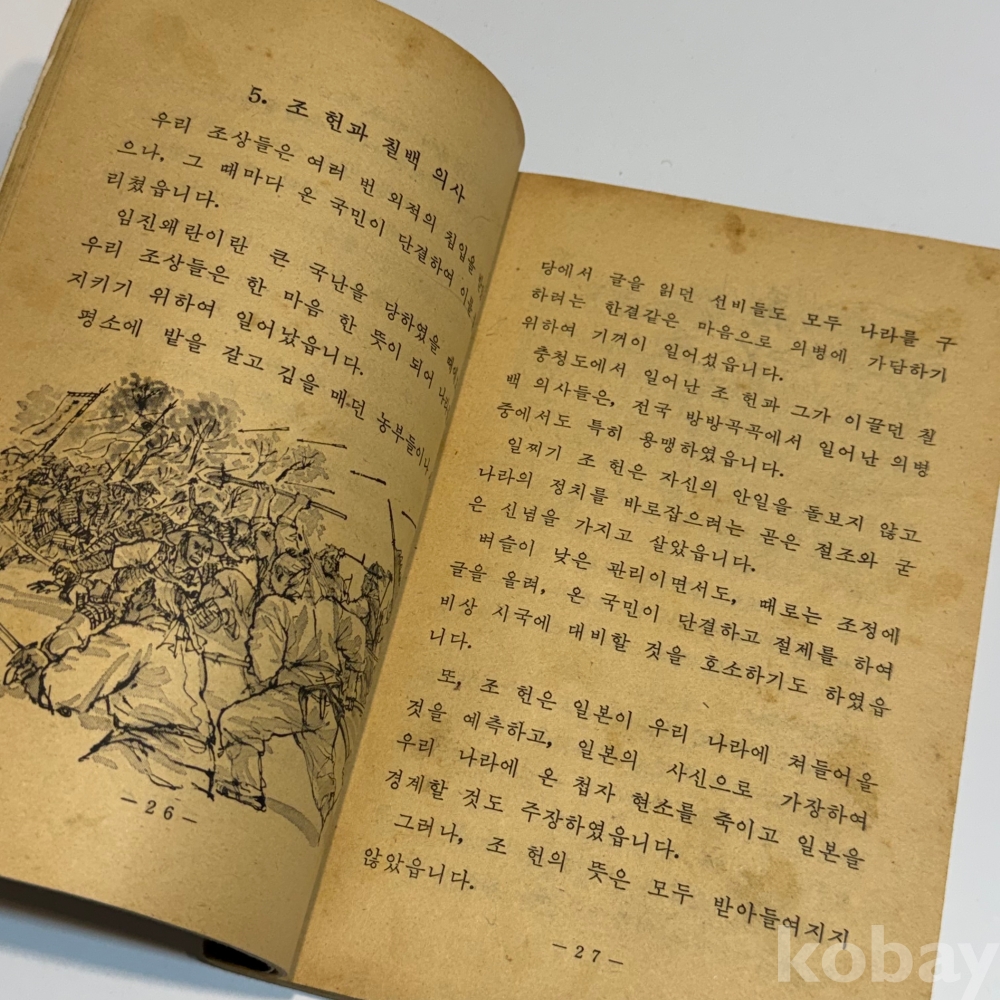 5. 조 헌과 칠백 의사
우리 조상들은 여러 번 외적의 침입을
으나. 그 때마다 온 국민이 단결하여 이를
리쳤읍니다.
임진왜란이란 큰 국난을 당하였을 때
우리 조상들은 한 마음 한 뜻이 되어
지키기 위하여 일어났읍니다.
평소에 밭을 갈고 김을 매던 농부들이나
—26—
당에서 글을 읽던 선비들도 모두 나라를 구
하려는 한결같은 마음으로 의병에 가담하기
위하여 기꺼이 일어섰읍니다.
충청도에서 일어난 조 헌과 그가 이끌던 칠
백 의사들은, 전국 방방곡곡에서 일어난 의병
중에서도 특히 용맹하였읍니다.
일찌기 조 헌은 자신의 안일을 돌보지 않고
나라의 정치를 바로잡으려는 곧은 절조와 굳
은 신념을 가지고 살았읍니다.
벼슬이 낮은 관리이면서도, 때로는 조정에
글을 올려, 온 국민이 단결하고 절제를 하여
비상 시국에 대비할 것을 호소하기도 하였읍
니다.
또, 조 헌은 일본이 우리 나라에 쳐들어올
것을 예측하고, 일본의 사신으로 가장하여
우리 나라에 온 첩자 현소를 죽이고 일본을
경계할 것도 주장하였읍니다.
그러나, 조 헌의 뜻은 모두 받아들여지지
않았읍니다.
—27—
kobay